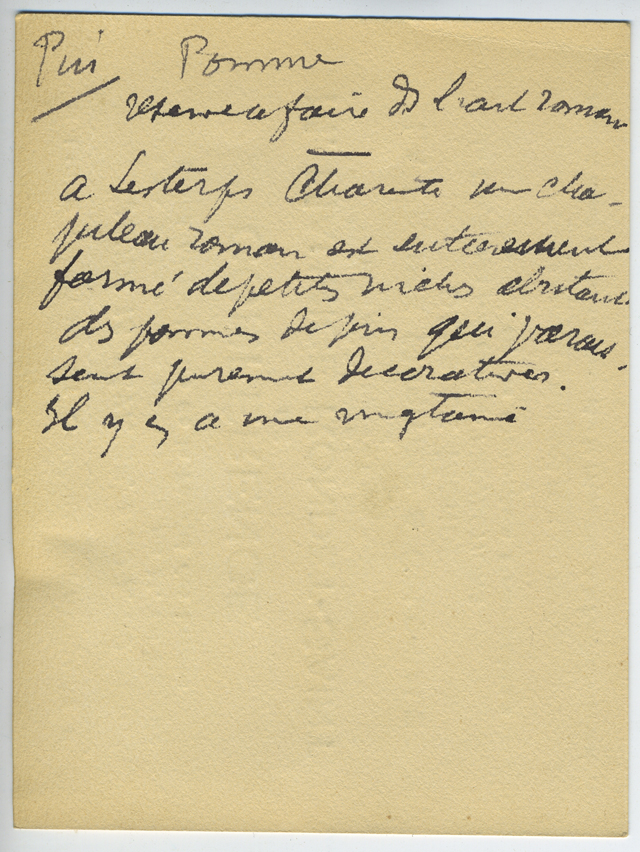 Pin Pomme
reserve a faire ds l'art roman
a Lesterps Charente un cha-
piteau roman est entierement
formé de petits niches abritant
des pommes de pin qui parais-
sent purement decoratives.
Il y en a une vingtaine